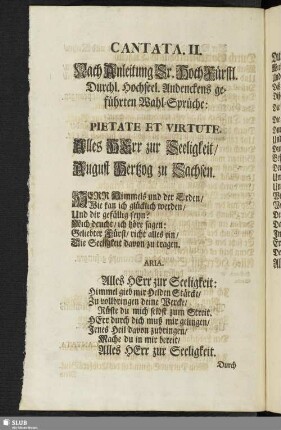 CANTATA. II.
Nach Anleitung Sr. HochFürstl.
Durchl. Hochseel. Andenckens ge-
führten Wahl-Sprüche:
PIETATE ET VIRTUTE.
Alles HErr zur Seeligkeit/
August Hertzog zu Sachsen.
HERR Himmels und der Erden/
Wie kan ich glücklich werden/
Und dir gefällig seyn?
Mich deucht/ ich höre sagen:
Geliebter Fürst/ richt alles ein/
Die Seeligkeit davon zu tragen.
ARIA.
Alles HErr zur Seeligkeit:
Himmel gieb mir Helden Stärcke/
Zu vollbringen deine Wercke/
Rüste du mich selbst zum Streit.
HErr durch dich muß mir gelingen/
Jenes Heil davon zubringen/
Mache du in mir bereit/
Alles HErr zur Seeligkeit.
Durch
SLUB